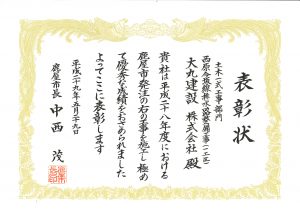 表彰状
土木一式工事部門
大丸建設 株式会社 殿
貴社は平成二十八年度における
鹿屋市発注の右の工事を施工し極め
て優秀な成績をおさめられました
よってここに表彰します
平成二十九年五月二十九日
鹿屋市長 中西 茂